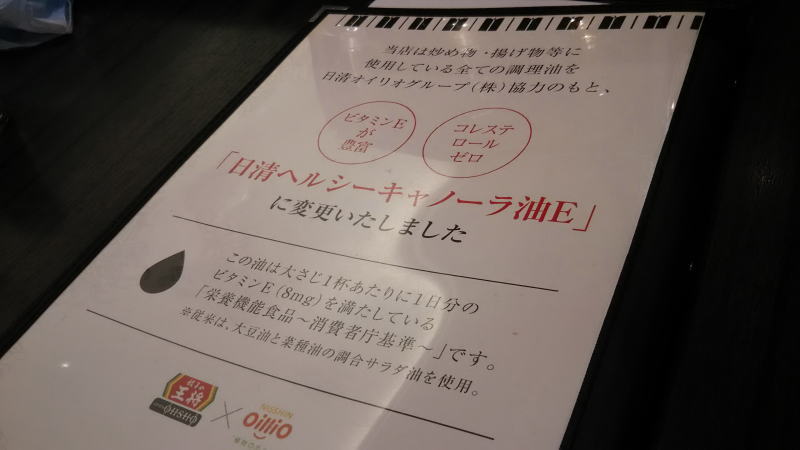 当店は炒め物・揚げ物等に
使用している全ての調理油を
日清オイリオグループ(株)協力のもと、
ビタミンE
が
豊富
コレステ
ロール
ゼロ
「日清ヘルシーキャノーラ油E」
に変更いたしました
この油は大さじ1杯あたりに1日分の
ビタミンE(8mg)を満たしている
「栄養機能食品～消費者庁基準～」です。
※従来は、大豆油と菜種油の調合サラダ油を使用。
餃子の
王将
OHSHO
×
NISSHIN
OilliO